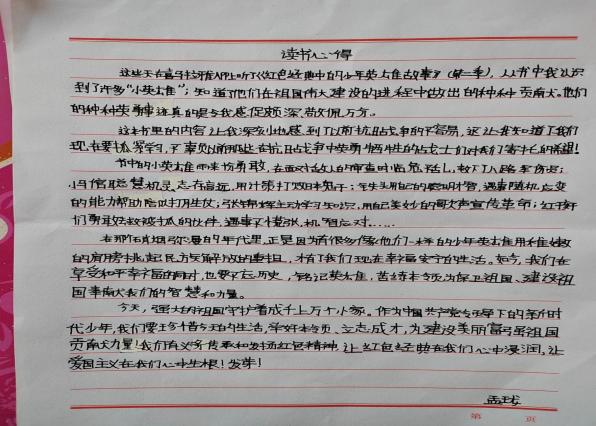 读书心得
这些天在喜马拉雅APP上听了《红色经典中的少年英雄故事》(第一季),从书中我认识
到了许多“小英雄”;知道了他们在祖国伟大建设的进程中做出的种种贡献。他们
的种种英雄事迹真的是令我感触颇深,敬佩万分。
这本书里的内容让我深刻地感到了以前抗日战争的不容易,还让我知道了我们
现在要认真学习,不辜负以前那些在抗日战争中英勇牺牲的战士们对我们寄托的希望!
书中的小英雄雨来勇敢,在面对敌人的审查时临危不乱,救了八路军伤员;
小兵信聪慧机灵志存高远,用计策打败日本鬼子;用自己的聪明才智,遇事随机应变
的能力帮助给战打用生女;张锦辉主动学习知识,用自己美妙的歌声宣传革命;红孩子
们勇敢拯救被抓的伙伴,遇事不慌张,机智应对……
在那硝烟弥漫的年代里,正是因为有很多像他们一样的少年英雄用稚嫩
的肩膀挑起民族解放的重担,才有我们现在幸福安宁的生活。如今,我们在
享受和平幸福的同时,也要不忘历史,铭记英雄,苦练本领,为保卫祖国、建设祖
国奉献我们的智慧和力量。
今天,强大的祖国守护着成千上万个小家。作为中国共产党领导下的新时
代少年,我们要珍惜今天的生活,学好本领,立志成才,为建设美丽富强祖国
贡献力量!我们有义务传承和发扬红色精神,让红色经典在我们心中浸润,让
爱国主义在我们心中生根!发芽!
孟珑
第 页